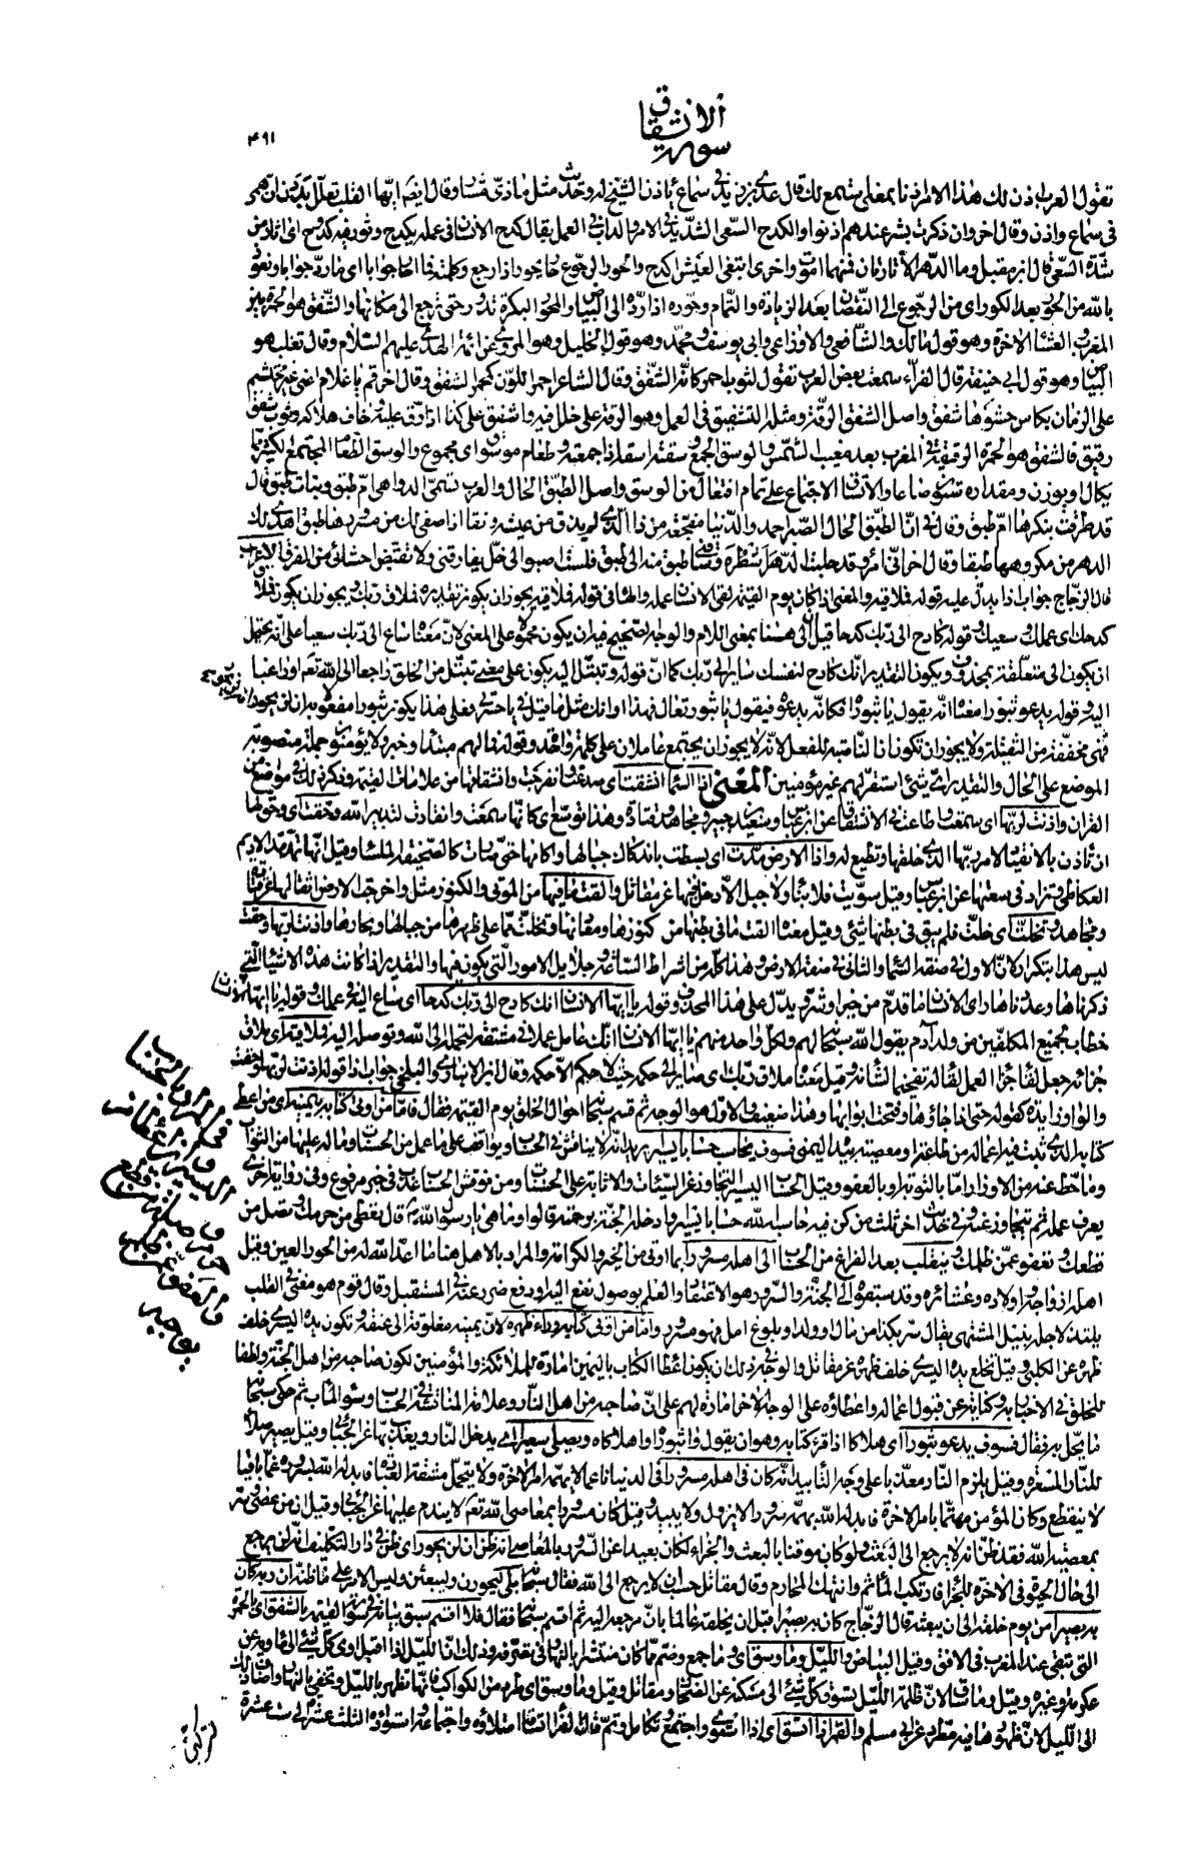 سورة الانشقاق
۴۹۱
تقول العرب اذن لك هذا الامر اذنا بمعنى استمع لك قال عدي بن زيد في سماع ياذن الشيخ له وحديث مثل ماذي مشار وقال ايضا ايها القلب تعلل بددن ان همي
في سماع واذن وقال اخر وان ذكرت بشر عندهم اذنوا والكدح السعي الشديد في الامر والداب في العمل يقال كدح الانسان في عمله يكدح وثور فيه كدوح اي اثار من
شدة السعي قال ابن مقبل وما الدهر الا تارتان فمنهما اموت واخرى ابتغي العيش اكدح والحور الرجوع حار يحور اذا رجع وكلمته فما احار جوابا اي ما رد جوابا ونعوذ
بالله من الحور بعد الكور اي من الرجوع الى النقصان بعد الزيادة والتمام وحوره اذا رده الى البياض والمحور البكرة تدور حتى ترجع الى مكانها والشفق هو الحمرة بين
المغرب والعشاء الاخرة وهو قول مالك والشافعي والاوزاعي وابي يوسف ومحمد وهو قول الخليل وهو المروي عن ائمة الهدى عليهم السلام وقال ثعلب هو
البياض وهو قول ابي حنيفة قال الفراء سمعت بعض العرب تقول لثوب احمر كانه الشفق وقال الشاعر احمر اللون كمحمر الشفق وقال اخر قم يا غلام اعني غير محتشم
على الزمان بكاس حشوها شفق واصل الشفق الرقة ومثله التشفيق في العمل وهو الرقة على خلل فيه واشفق على كذا اذا رق عليه وخاف هلاكه وثوب شفق
رقيق فالشفق هو الحمرة الرقيقة في المغرب بعد مغيب الشمس والوسق الجمع وسقته اسقه اذا جمعته وطعام موسوق اي مجموع والوسق الطعام المجتمع الكثير مما
يكال او يوزن ومقداره ستون صاعا والاتساق الاجتماع على تمام افتعال من الوسق واصل الطبق الحال والعرب تسمي الدواهي ام طبق وبنات طبق قال
قد طرقت ببكرها ام طبق وقال في ان الطبق الحال الصبر احمد والدنيا مفجعة من ذا الذي لم يذق من عيشه رنقا اذا صفى لك من مسرورها طبق اهدى لك
الدهر من مكروهها طبقا وقال اخر اني امرؤ قد حلبت الدهر اشطره وساقني طبق منه الى طبق فلست اصبو الى خل يفارقني ولا تقبض احشائي من الفرق الاعراب
قال الزجاج جواب اذا يدل عليه قوله فملاقيه والمعنى اذا كان يوم القيمة لقي الانسان عمله والهاء في قوله فملاقيه يجوز ان يكون تقديره فملاق ربك ويجوز ان يكون فملاق
كدحك اي عملك وسعيك وقوله كادح الى ربك كدحا قيل ان الى هنا بمعنى اللام والوجه الصحيح فيه ان يكون محمولا على المعنى لان معناه ساع الى ربك سعيا على انه يحتمل
ان يكون الى متعلقة بمحذوف ويكون التقدير انك كادح لنفسك صائرا الى ربك كما ان قوله وتبتل اليه يكون على معنى تبتل من الخلق راجعا الى الله تعالى او راغبا
اليه وقوله يدعو ثبورا معناه انه يقول يا ثبوراه فكانه يدعوه فيقول يا ثبور تعال فهذا اوانك مثل ما قيل في يا حسرتى فعلى هذا يكون ثبورا مفعولا به ان لن يحور ان هذه
فهي مخففة من الثقيلة ولا يجوز ان تكون ان الناصبة للفعل لانه لا يجوز ان يجتمع عاملان على كلمة واحدة وقوله فما لهم مبتدا وخبر ولا يؤمنون جملة منصوبة
الموضع على الحال والتقدير اي شيء استقر لهم غير مؤمنين المعنى اذا السماء انشقت اي تصدعت وانفرجت وانشقاقها من علامات القيمة وذكر ذلك في مواضع من
القران واذنت لربها اي سمعت واطاعت في الانشقاق عن ابن عباس وسعيد بن جبير ومجاهد وقتادة وهذا توسع اي كانها سمعت وانقادت لتدبير الله وحقت اي وحق لها
ان تاذن بالانقياد لامر ربها الذي خلقها وتطيع له واذا الارض مدت اي بسطت باندكاك جبالها واكامها حتى صارت كالصحيفة الملساء وقيل انها تمد مد الاديم
العكاظي وتزاد في سعتها عن ابن عباس وقيل سويت فلا بناء ولا جبل الا دخل فيها عن مقاتل والقت ما فيها من الموتى والكنوز مثل واخرجت الارض اثقالها عن قتادة
ومجاهد وتخلت اي خلت فلم يبق في بطنها شيء وقيل معناه القت ما في بطنها من كنوزها ومعادنها وتخلت مما على ظهرها من جبالها وبحارها واذنت لربها وحقت
ليس هذا بتكرار لان الاول في صفة السماء والثاني في صفة الارض وهذا كله من اشراط الساعة وجلائل الامور التي يكون فيها والتقدير اذا كانت هذه الاشياء التي
ذكرناها وعددناها راى الانسان ما قدم من خير او شر ويدل على هذا المحذوف قوله يا ايها الانسان انك كادح الى ربك كدحا اي ساع اليه في عملك وقوله يا ايها الانسان
خطاب لجميع المكلفين من ولد آدم يقول الله سبحانه لهم ولكل واحد منهم يا ايها الانسان انك عامل عملا في مشقة لتحمله الى الله وتوصله اليه فملاقيه اي ملاق
جزائه جعل لقاء جزاء العمل لقاء له تفخيما لشانه وقيل معناه ملاق ربك اي صائر الى حكمه حيث لا حكم الا حكمه وقال ابن الانباري والبلخي جواب اذا قوله اذنت لربها وحقت
والواو زايدة كقوله حتى اذا جاؤها وفتحت ابوابها وهذا ضعيف والاول هو الوجه ثم قسم سبحانه احوال الخلق يوم القيمة فقال فاما من اوتي كتابه بيمينه اي من اعطي
كتابه الذي ثبت فيه اعماله من طاعة او معصية بيده اليمنى فسوف يحاسب حسابا يسيرا يريد انه لا يناقش في الحساب ولا يواقف على ما عمل من الحسنات وماله عليها من الثواب
وما حط عنه من الاوزار اما بالتوبة او بالعفو وقيل الحساب اليسير التجاوز عن السيئات والاثابة على الحسنات ومن نوقش الحساب عذب في خبر مرفوع وفي رواية اخرى
يعرف عمله ثم يتجاوز عنه وفي حديث اخر ثلث من كن فيه حاسبه الله حسابا يسيرا وادخله الجنة برحمته قالوا وما هي يا رسول الله قال تعطي من حرمك وتصل من
قطعك وتعفو عمن ظلمك وينقلب بعد الفراغ من الحساب الى اهله مسرورا بما اوتي من الخير والكرامة والمراد بالاهل هنا ما اعد الله له من الحور العين وقيل
اهله ازواجه واولاده وعشائره وقد سبقوه الى الجنة والسرور هو الاعتقاد والعلم بوصول نفع اليه او دفع ضرر عنه في المستقبل وقال قوم هو معنى في القلب
يلتذ لاجله بنيل المشتهى يقال سر بكذا من مال او ولد او بلوغ امل فهو مسرور واما من اوتي كتابه وراء ظهره لان يمينه مغلولة الى عنقه وتكون يده اليسرى خلف
ظهره عن الكلبي وقيل تخلع يده اليسرى خلف ظهره عن مقاتل والوجه في ذلك ان يكون اعطاء الكتاب باليمين امارة للملائكة والمؤمنين لكون صاحبه من اهل الجنة ولطفا
للخلق في الاخبار به وكناية عن قبول اعماله واعطاؤه على الوجه الاخر امارة لهم على ان صاحبه من اهل النار وعلامة المناقشة في الحساب وسوء الماب ثم حكى سبحانه
ما يحل به فقال فسوف يدعو ثبورا اي هلاكا اذا قرء كتابه وهو ان يقول وا ثبوراه وا هلاكاه ويصلى سعيرا اي يدخل النار ويعذب بها عن الجبائي وقيل يصير صلاء
للنار المسعرة وقيل يلزم النار معذبا على وجه التابيد انه كان في اهله مسرورا في الدنيا ناعما لا يهمه امر الاخرة ولا يتحمل مشقة العبادة فابدله الله بسروره غما باقيا
لا ينقطع وكان المؤمن مهتما بامر الاخرة فابدله الله بهمه سرورا لا يزول ولا يبيد وقيل كان مسرورا بمعاصي الله تعالى لا يندم عليها عن الجبائي وقيل ان من عصى وسر
بمعصية الله فقد ظن انه لا يرجع الى البعث ولو كان موقنا بالبعث والجزاء لكان بعيدا عن السرور بالمعاصي انه ظن ان لن يحور اي ظن في دار التكليف انه لن يرجع
الى حال الحيوة في الاخرة للجزاء فارتكب الماثم وانتهك المحارم وقال مقاتل حسب ان لا يرجع الى الله فقال سبحانه بلى ليحورن وليبعثن وليس الامر على ما ظنه ان ربه كان
به بصيرا من يوم خلقه الى ان يبعثه قال الزجاج كان به بصيرا قبل ان يخلقه عالما بان مرجعه اليه ثم اقسم سبحانه فقال فلا اقسم سبق بيانه في سورة القيمة بالشفق اي بالحمرة
التي تبقى عند المغرب في الافق وقيل البياض والليل وما وسق اي وما جمع وضم مما كان منتشرا بالنهار في تصرفه وذلك ان الليل اذا اقبل اوى كل شيء الى ماويه عن
عكرمة وغيره وقيل وما ساق لان ظلمة الليل تسوق كل شيء الى مسكنه عن الضحاك ومقاتل وقيل وما وسق اي طرد من الكواكب فانها تظهر بالليل وتخفى بالنهار واضاف ذلك
الى الليل لان ظهورها فيه مطرد عن ابي مسلم والقمر اذا اتسق اي اذا استوى واجتمع وتكامل وتم قال الفراء اتساقه امتلاؤه واجتماعه واستواؤه لثلث عشرة الى ست عشرة